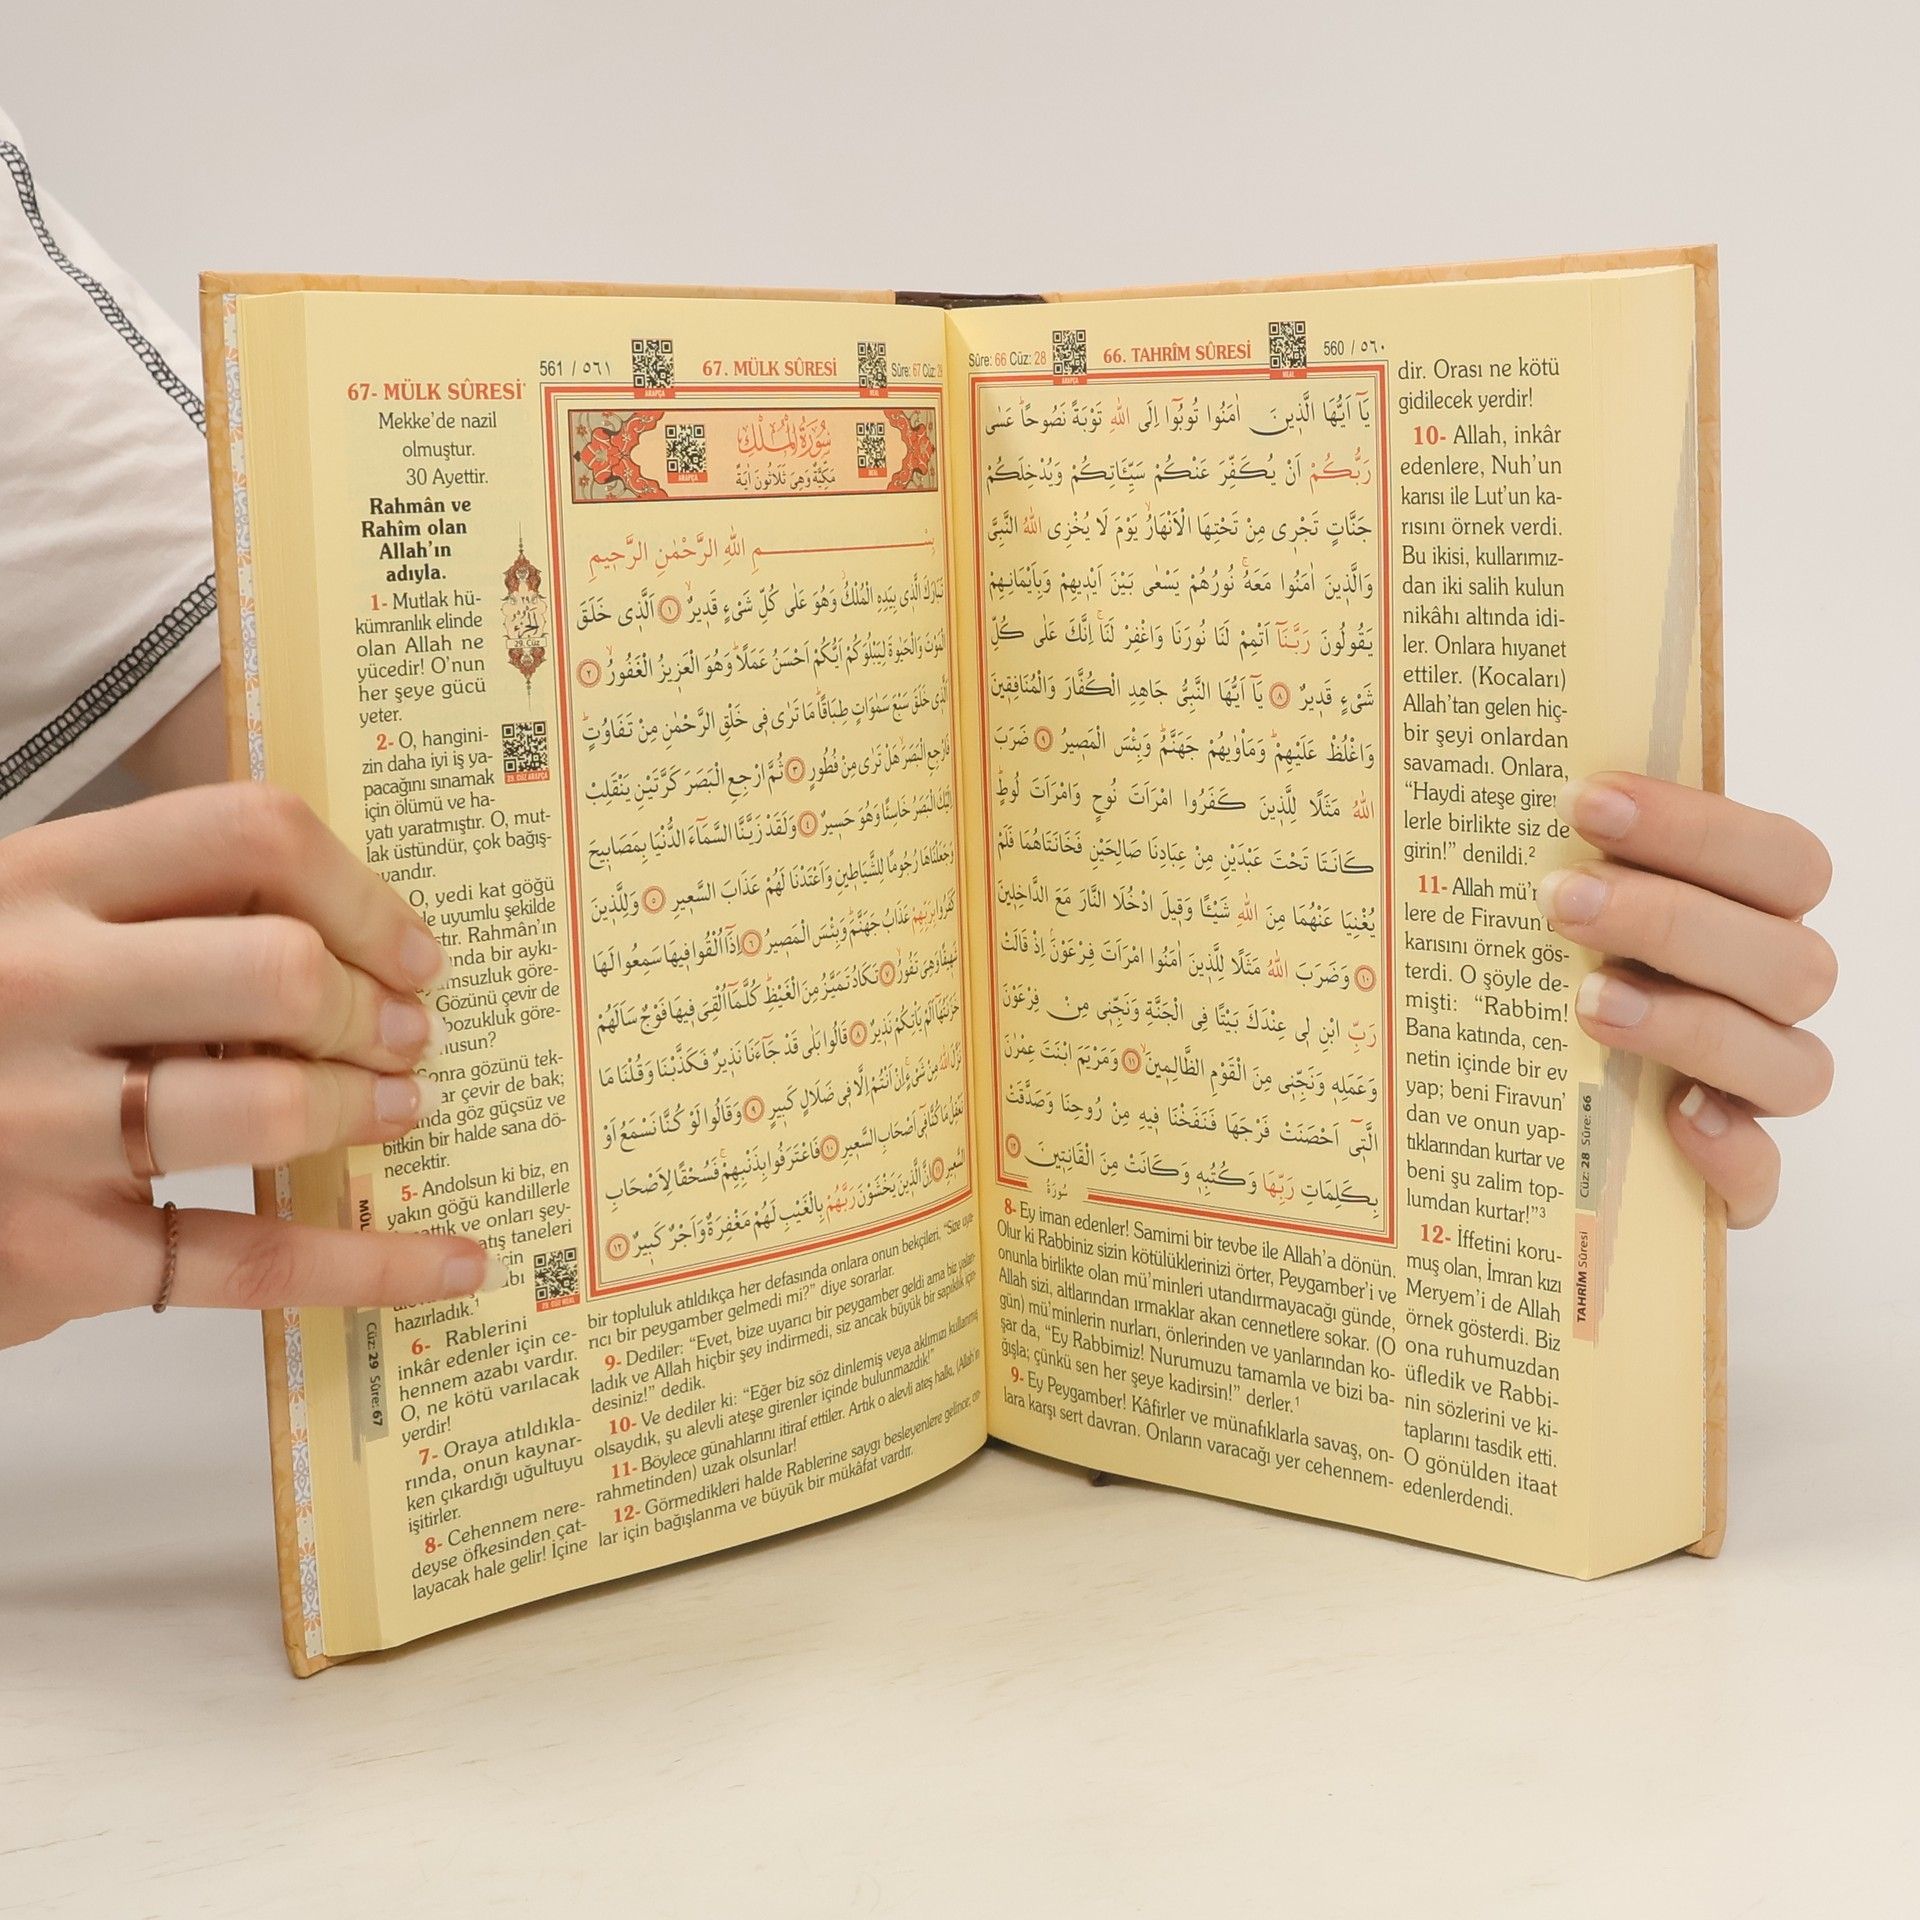 Sûre: 66 Cüz: 28
66. TAHRÎM SÛRESİ
560 / ٥٦٠
يَٓا اَيُّهَا الَّذ۪ينَ اٰمَنُوا تُوبُٓوا اِلَى اللّٰهِ تَوْبَةً نَصُوحًاۜ عَسٰى
رَبُّكُمْ اَنْ يُكَفِّرَ عَنْكُمْ سَيِّـَٔاتِكُمْ وَيُدْخِلَكُمْ
جَنَّاتٍ تَجْر۪ي مِنْ تَحْتِهَا الْاَنْهَارُۙ يَوْمَ لَا يُخْزِي اللّٰهُ النَّبِيَّ
وَالَّذ۪ينَ اٰمَنُوا مَعَهُۚ نُورُهُمْ يَسْعٰى بَيْنَ اَيْد۪يهِمْ وَبِاَيْمَانِهِمْ
يَقُولُونَ رَبَّنَٓا اَتْمِمْ لَنَا نُورَنَا وَاغْفِرْ لَنَاۚ اِنَّكَ عَلٰى كُلِّ
شَيْءٍ قَد۪يرٌ ﴿٨﴾ يَٓا اَيُّهَا النَّبِيُّ جَاهِدِ الْكُفَّارَ وَالْمُنَافِق۪ينَ
وَاغْلُظْ عَلَيْهِمْۜ وَمَأْوٰيهُمْ جَهَنَّمُۜ وَبِئْسَ الْمَص۪يرُ ﴿٩﴾ ضَرَبَ
اللّٰهُ مَثَلًا لِلَّذ۪ينَ كَفَرُوا امْرَاَتَ نُوحٍ وَامْرَاَتَ لُوطٍۜ
كَانَتَا تَحْتَ عَبْدَيْنِ مِنْ عِبَادِنَا صَالِحَيْنِ فَخَانَتَاهُمَا فَلَمْ
يُغْنِيَا عَنْهُمَا مِنَ اللّٰهِ شَيْـًٔا وَق۪يلَ ادْخُلَا النَّارَ مَعَ الدَّاخِل۪ينَ
﴿١٠﴾ وَضَرَبَ اللّٰهُ مَثَلًا لِلَّذ۪ينَ اٰمَنُوا امْرَاَتَ فِرْعَوْنَۢ اِذْ قَالَتْ
رَبِّ ابْنِ ل۪ي عِنْدَكَ بَيْتًا فِي الْجَنَّةِ وَنَجِّن۪ي مِنْ فِرْعَوْنَ
وَعَمَلِه۪ وَنَجِّن۪ي مِنَ الْقَوْمِ الظَّالِم۪ينَۙ ﴿١١﴾ وَمَرْيَمَ ابْنَتَ عِمْرٰنَ
الَّت۪ٓي اَحْصَنَتْ فَرْجَهَا فَنَفَخْنَا ف۪يهِ مِنْ رُوحِنَا وَصَدَّقَتْ
بِكَلِمَاتِ رَبِّهَا وَكُتُبِه۪ وَكَانَتْ مِنَ الْقَانِت۪ينَ ﴿١٢﴾
سُورَةُ
8- Ey iman edenler! Samimi bir tevbe ile Allah’a dönün.
Olur ki Rabbiniz sizin kötülüklerinizi örter, Peygamber’i ve
onunla birlikte olan mü’minleri utandırmayacağı günde,
Allah sizi, altlarından ırmaklar akan cennetlere sokar. (O
gün) mü’minlerin nurları, önlerinden ve yanlarından ko-
şar da, “Ey Rabbimiz! Nurumuzu tamamla ve bizi ba-
ğışla; çünkü sen her şeye kadirsin!” derler.¹
9- Ey Peygamber! Kâfirler ve münafıklarla savaş, on-
lara karşı sert davran. Onların varacağı yer cehennem-
dir. Orası ne kötü
gidilecek yerdir!
10- Allah, inkâr
edenlere, Nuh’un
karısı ile Lut’un ka-
rısını örnek verdi.
Bu ikisi, kullarımız-
dan iki salih kulun
nikâhı altında idi-
ler. Onlara hıyanet
ettiler. (Kocaları)
Allah’tan gelen hiç-
bir şeyi onlardan
savamadı. Onlara,
“Haydi ateşe giren
lerle birlikte siz de
girin!” denildi.²
11- Allah
lere de Firavun’
karısını örnek gös-
terdi. O şöyle de-
mişti: “Rabbim!
Bana katında, cen-
netin içinde bir ev
yap; beni Firavun’
dan ve onun yap-
tıklarından kurtar ve
beni şu zalim top-
lumdan kurtar!”³
12- İffetini koru-
muş olan, İmran kızı
Meryem’i de Allah
örnek gösterdi. Biz
ona ruhumuzdan
üfledik ve Rabbi-
nin sözlerini ve ki-
taplarını tasdik etti.
O gönülden itaat
edenlerdendi.
Cüz: 28 Sûre: 66
TAHRÎM Sûresi
561 / ٥٦١
67. MÜLK SÛRESİ
Sûre: 67 Cüz:
67- MÜLK SÛRESİ
Mekke’de nazil
olmuştur.
30 Ayettir.
Rahmân ve
Rahîm olan
Allah’ın
adıyla.
1- Mutlak hü-
kümranlık elinde
olan Allah ne
yücedir! O’nun
her şeye gücü
yeter.
2- O, hangini-
zin daha iyi iş ya-
pacağını sınamak
için ölümü ve ha-
yatı yaratmıştır. O, mut-
lak üstündür, çok bağış-
O, yedi kat göğü
uyumlu şekilde
Rahmân’ın
bir aykı-
göre-
Gözünü çevir de
bozukluk göre-
gözünü tek-
çevir de bak;
göz güçsüz ve
bitkin bir halde sana dö-
necektir.
5- Andolsun ki biz, en
yakın göğü kandillerle
ve onları şey-
taneleri
için
hazırladık.¹
6- Rablerini
inkâr edenler için ce-
hennem azabı vardır.
O, ne kötü varılacak
yerdir!
7- Oraya atıldıkla-
rında, onun kaynar-
ken çıkardığı uğultuyu
işitirler.
8- Cehennem nere-
deyse öfkesinden çat-
layacak hale gelir! İçine
سُورَةُ الْمُلْكِ
مَكِّيَّةٌ وَهِيَ ثَلَاثُونَ اٰيَةً
بِسْمِ اللّٰهِ الرَّحْمٰنِ الرَّح۪يمِ
تَبَارَكَ الَّذ۪ي بِيَدِهِ الْمُلْكُۘ وَهُوَ عَلٰى كُلِّ شَيْءٍ قَد۪يرٌۙ ﴿١﴾ اَلَّذ۪ي خَلَقَ
الْمَوْتَ وَالْحَيٰوةَ لِيَبْلُوَكُمْ اَيُّكُمْ اَحْسَنُ عَمَلًاۜ وَهُوَ الْعَز۪يزُ الْغَفُورُۙ ﴿٢﴾
اَلَّذ۪ي خَلَقَ سَبْعَ سَمٰوَاتٍ طِبَاقًاۜ مَا تَرٰى ف۪ي خَلْقِ الرَّحْمٰنِ مِنْ تَفَاوُتٍۜ
فَارْجِعِ الْبَصَرَۙ هَلْ تَرٰى مِنْ فُطُورٍ ﴿٣﴾ ثُمَّ ارْجِعِ الْبَصَرَ كَرَّتَيْنِ يَنْقَلِبْ
اِلَيْكَ الْبَصَرُ خَاسِئًا وَهُوَ حَس۪يرٌ ﴿٤﴾ وَلَقَدْ زَيَّنَّا السَّمَٓاءَ الدُّنْيَا بِمَصَاب۪يحَ
وَجَعَلْنَاهَا رُجُومًا لِلشَّيَاط۪ينِ وَاَعْتَدْنَا لَهُمْ عَذَابَ السَّع۪يرِ ﴿٥﴾ وَلِلَّذ۪ينَ
كَفَرُوا بِرَبِّهِمْ عَذَابُ جَهَنَّمَۜ وَبِئْسَ الْمَص۪يرُ ﴿٦﴾ اِذَٓا اُلْقُوا ف۪يهَا سَمِعُوا لَهَا
شَه۪يقًا وَهِيَ تَفُورُۙ ﴿٧﴾ تَكَادُ تَمَيَّزُ مِنَ الْغَيْظِۜ كُلَّمَٓا اُلْقِيَ ف۪يهَا فَوْجٌ سَاَلَهُمْ
خَزَنَتُهَٓا اَلَمْ يَأْتِكُمْ نَذ۪يرٌ ﴿٨﴾ قَالُوا بَلٰى قَدْ جَٓاءَنَا نَذ۪يرٌ فَكَذَّبْنَا وَقُلْنَا مَا
نَزَّلَ اللّٰهُ مِنْ شَيْءٍۚ اِنْ اَنْتُمْ اِلَّا ف۪ي ضَلَالٍ كَب۪يرٍ ﴿٩﴾ وَقَالُوا لَوْ كُنَّا نَسْمَعُ اَوْ
نَعْقِلُ مَا كُنَّا ف۪ٓي اَصْحَابِ السَّع۪يرِ ﴿١٠﴾ فَاعْتَرَفُوا بِذَنْبِهِمْۚ فَسُحْقًا لِاَصْحَابِ
السَّع۪يرِ ﴿١١﴾ اِنَّ الَّذ۪ينَ يَخْشَوْنَ رَبَّهُمْ بِالْغَيْبِ لَهُمْ مَغْفِرَةٌ وَاَجْرٌ كَب۪يرٌ ﴿١٢﴾
bir topluluk atıldıkça her defasında onlara onun bekçileri, “Size uya-
rıcı bir peygamber gelmedi mi?” diye sorarlar.
9- Dediler: “Evet, bize uyarıcı bir peygamber geldi ama biz yalan-
ladık ve Allah hiçbir şey indirmedi, siz ancak büyük bir sapıklık için-
desiniz!” dedik.
10- Ve dediler ki: “Eğer biz söz dinlemiş veya aklımızı kullanmış
olsaydık, şu alevli ateşe girenler içinde bulunmazdık!”
11- Böylece günahlarını itiraf ettiler. Artık o alevli ateş halkı, (Allah’ın
rahmetinden) uzak olsunlar!
12- Görmedikleri halde Rablerine saygı besleyenlere gelince; on-
lar için bağışlanma ve büyük bir mükâfat vardır.
٢٩
اَلْجُزْءُ
29. Cüz
29. CÜZ ARAPÇA
Cüz: 29 Sûre: 67
ARAPÇA
MEAL
ARAPÇA
MEAL